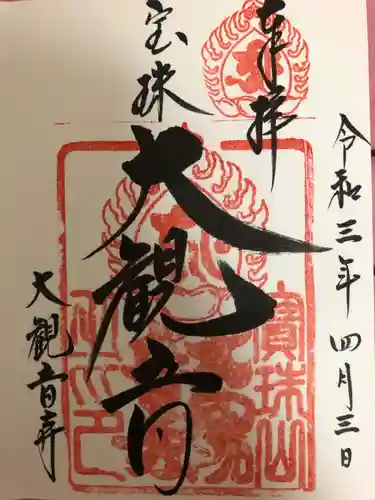 奉拝
令和三年四月三日
宝珠
大観音
大観音寺
寳珠山